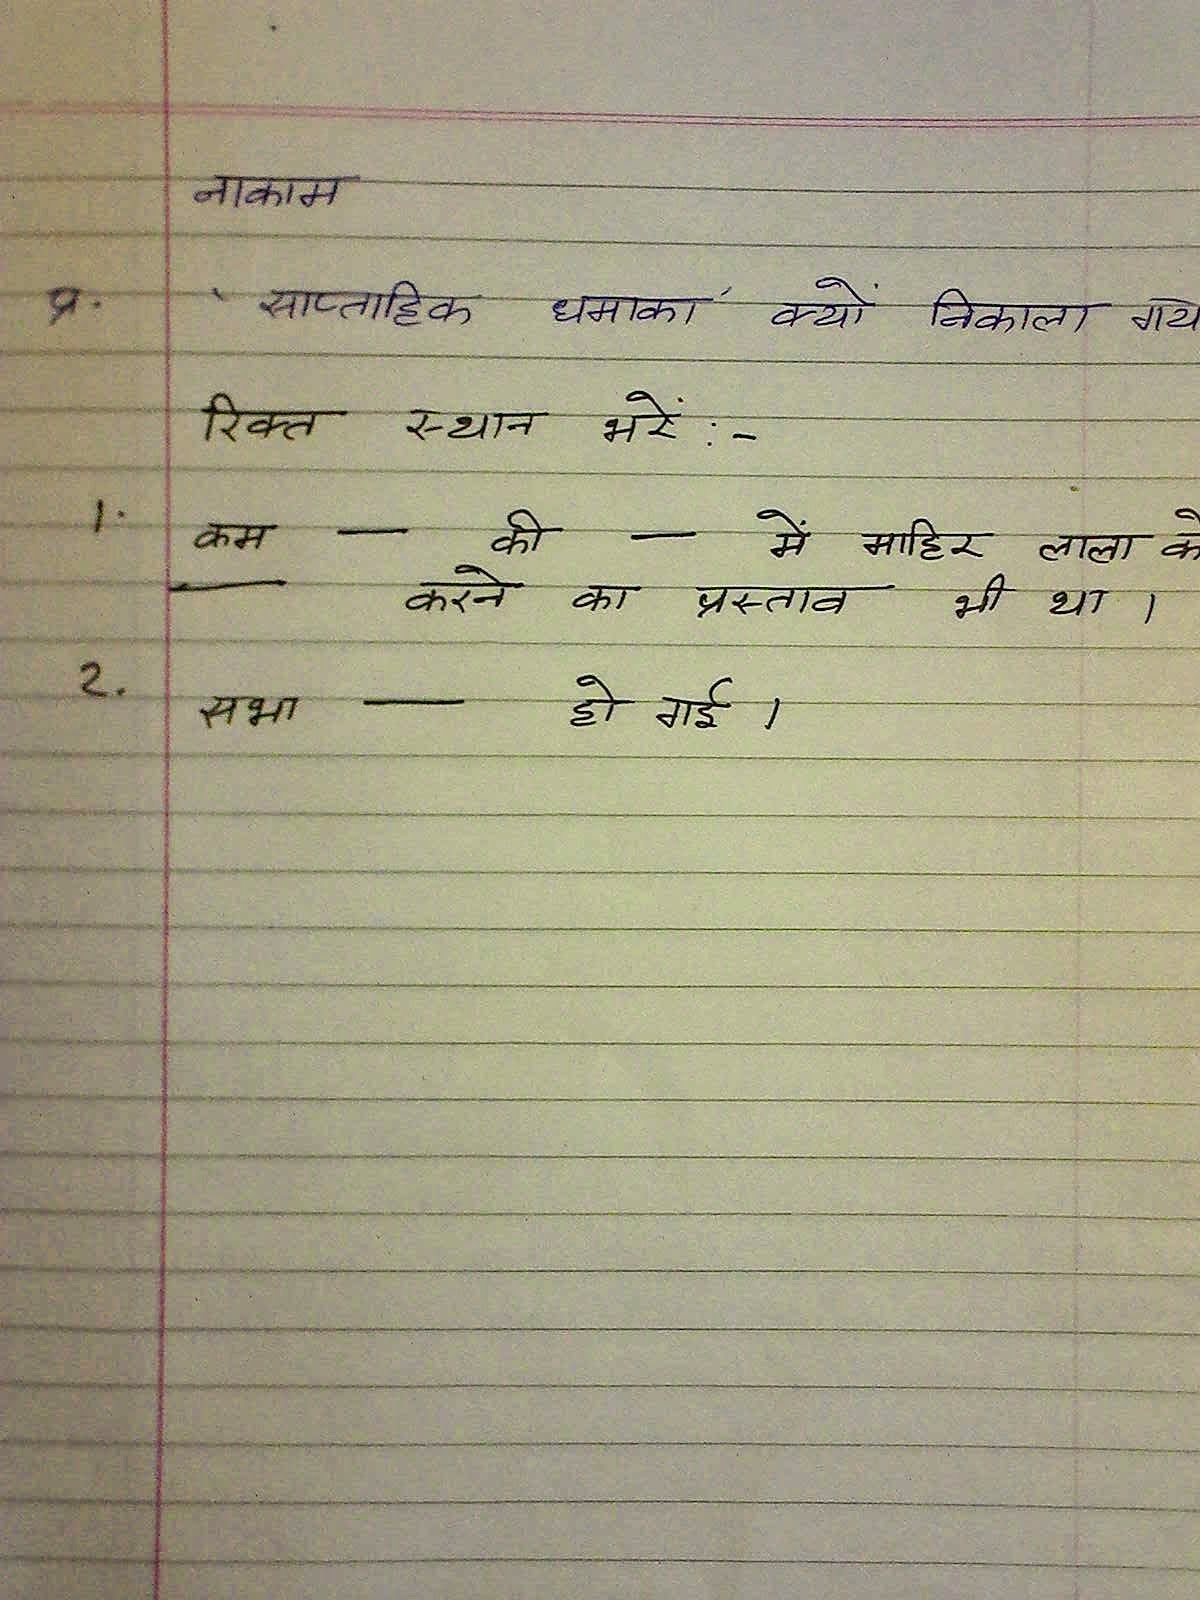 नाकाम
प्र. ' साप्ताहिक धमाका ' क्यों निकाला गय
रिक्त स्थान भरें :-
1. कम — की — में माहिर लाला के
— करने का प्रस्ताव भी था ।
2. सभा — हो गई ।